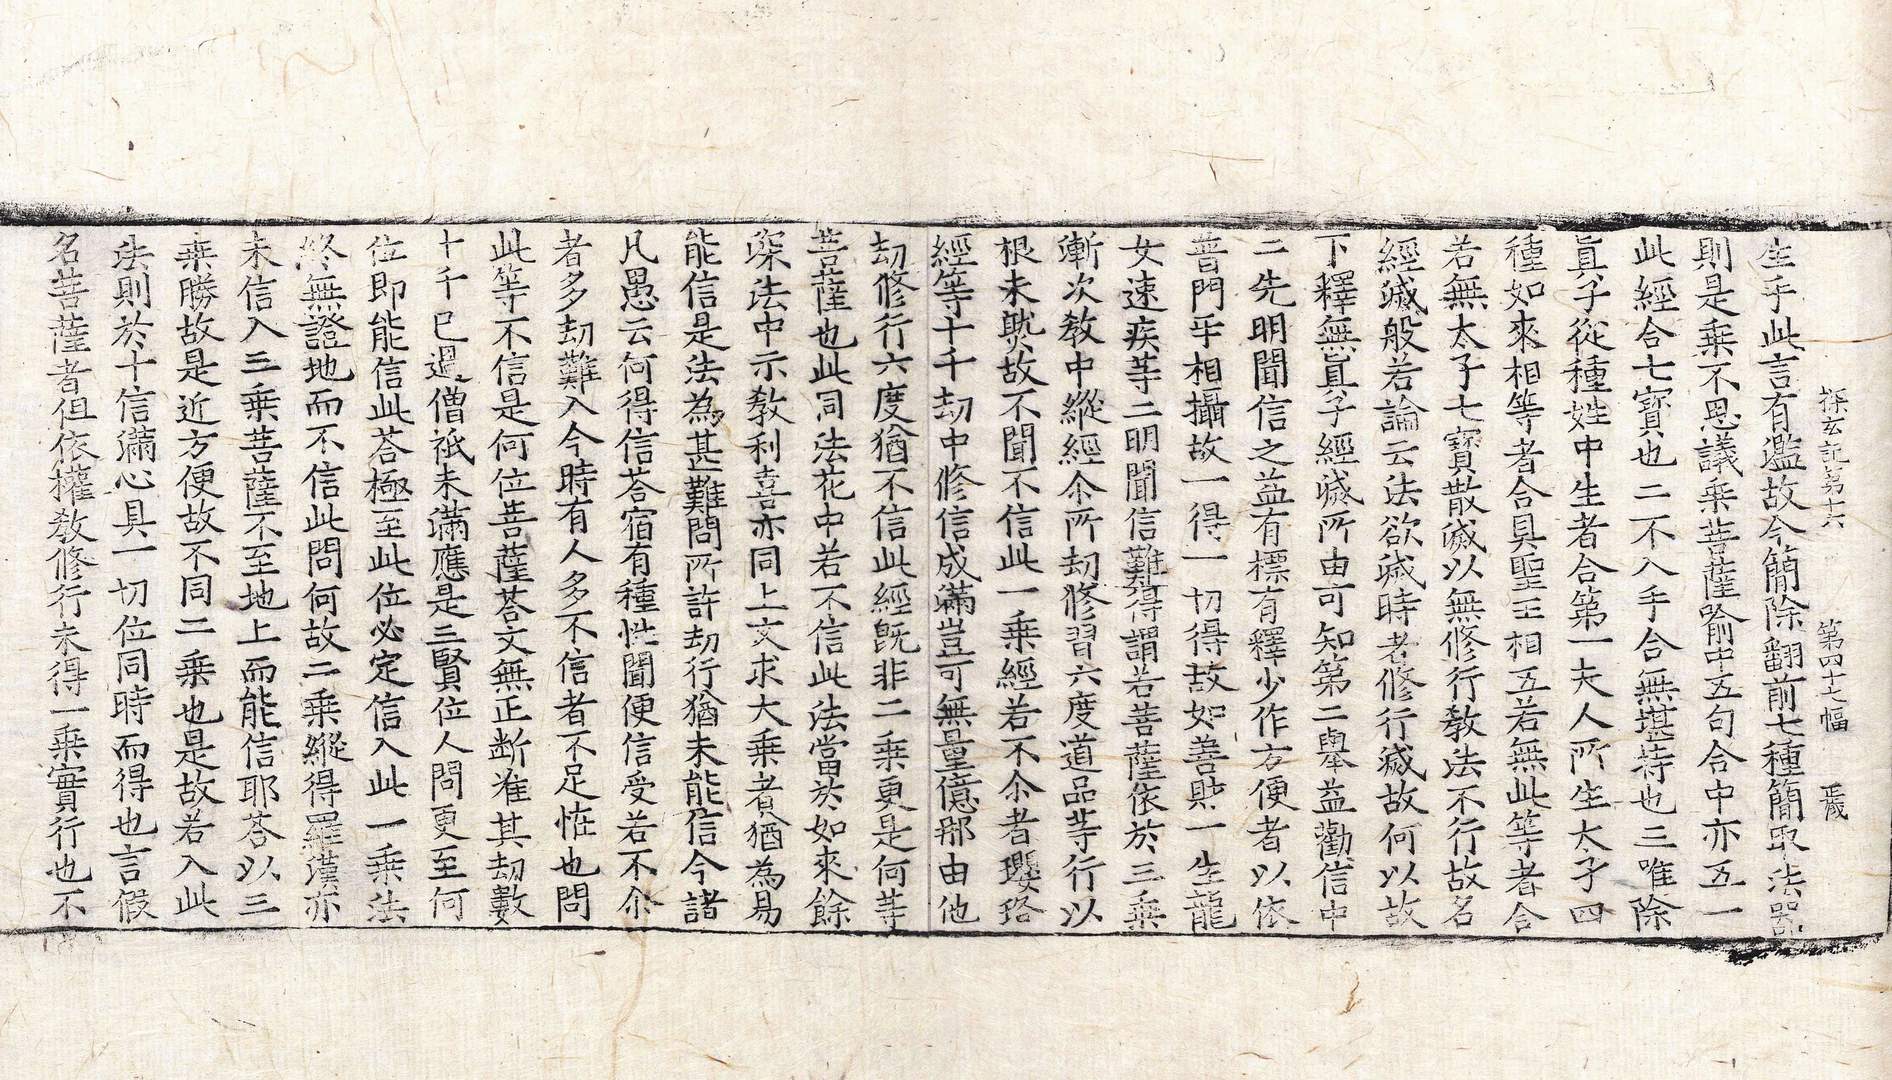 探玄記第十六　第四十七幅　𢦙
生乎此言有濫故今簡除翻前七種簡取法器
則是乗不思議乗菩薩喻中五句合中亦五一
此經合七寳也二不入手合無堪持也三唯除
真子從種姓中生者合第一夫人所生太子四
種如來相等者合具聖王相五若無此等者合
若無太子七寳散滅以無修行教法不行故名
經滅般若論云法欲滅時者修行滅故何以故
下釋無真子經滅所由可知第二舉益勸信中
二先明聞信之益有標有釋少作方便者以依
普門乎相攝故一得一切得故如善財一生龍
女速疾等二明聞信難得謂若菩薩依於三乗
漸次教中縱經尒所劫修習六度道品等行以
根未熟故不聞不信此一乗經若不尒者瓔珞
經等十千劫中修信成滿豈可無量億那由他
劫修行六度猶不信此經既非二乗更是何等
菩薩也此同法花中若不信此法當於如來餘
深法中示教利喜亦同上文求大乗者猶為易
能信是法為甚難問所許劫行猶未能信今諸
凡愚云何得信荅宿有種性聞便信受若不尒
者多劫難入今時有人多不信者不足恠也問
此等不信是何位菩薩荅文無正断准其劫數
十千已過僧祇未滿應是三賢位人問更至何
位即能信此荅極至此位必定信入此一乗法
終無證地而不信此問何故二乗縱得羅漢亦
未信入三乗菩薩不至地上而能信耶荅以三
乗勝故是近方便故不同二乗也是故若入此
法則於十信滿心具一切位同時而得也言假
名菩薩者但依權教修行未得一乗實行也不